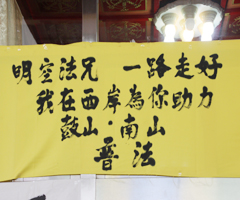 明空法兄 一路走好
我在西岸為你助力
鼓山·南山
普法